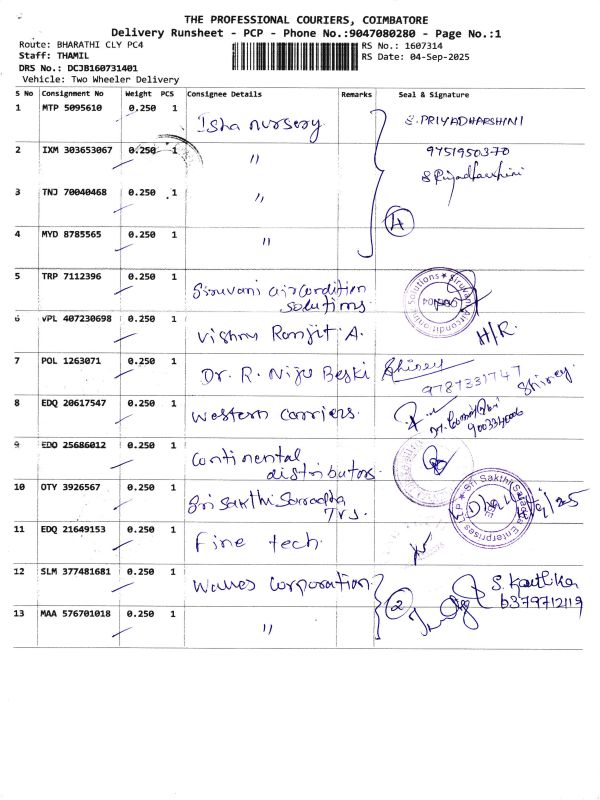 THE PROFESSIONAL COURIERS, COIMBATORE
Delivery Runsheet - PCP - Phone No.:9047080280 - Page No.:1
Route: BHARATHI CLY PC4
RS No.: 1607314
Staff: THAMIL
RS Date: 04-Sep-2025
DRS No.: DCJB160731401
Vehicle: Two Wheeler Delivery
S No Consignment No Weight PCS Consignee Details Remarks Seal & Signature
1 MTP 5095610 0.250 1 Isha nursery S. PRIYADHARSHINI
2 IXM 303653067 0.250 1 " 9751950370
S Priyadharshini
3 TNJ 70040468 0.250 1 "
4 MYD 8785565 0.250 1 " 4
5 TRP 7112396 0.250 1 Siruvani aircondition
solutions
6 VPL 407230698 0.250 1 Vishnu Ranjit A. H/R.
7 POL 1263071 0.250 1 Dr. R. Niju Beski Shirley
9787331747 Shirley
8 EDQ 20617547 0.250 1 Western carriers.
9 EDO 25686012 0.250 1 Continental
distributors.
10 OTY 3926567 0.250 1 Sri Sakthi Saradha
Trs.
Sri Sakthi Sarada Enterprises LLP
11 EDQ 21649153 0.250 1 Fine tech.
12 SLM 377481681 0.250 1 Waves corporation S. Karthika
2 6379712119
13 MAA 576701018 0.250 1 "